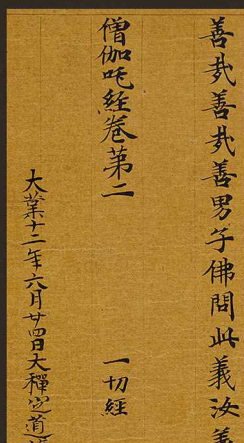 善哉善哉善男子佛問此義汝善
僧伽吒經卷第二 一切經
大業十二年六月廿四日大禪定道